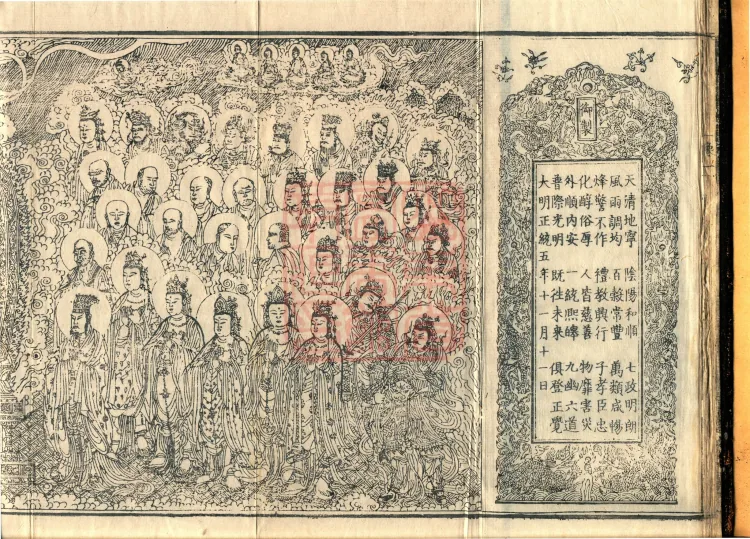 御製
天清地寧 陰陽和順 七政明朗
風雨調均 百穀常豐 萬類咸暢
烽警不作 禮教興行 子孝臣忠
化醇俗厚 人皆慈善 物靡害災
外順內安 一統熙皞 九幽六道
普際光明 既往未來 俱登正覺
大明正統五年十一月十一日